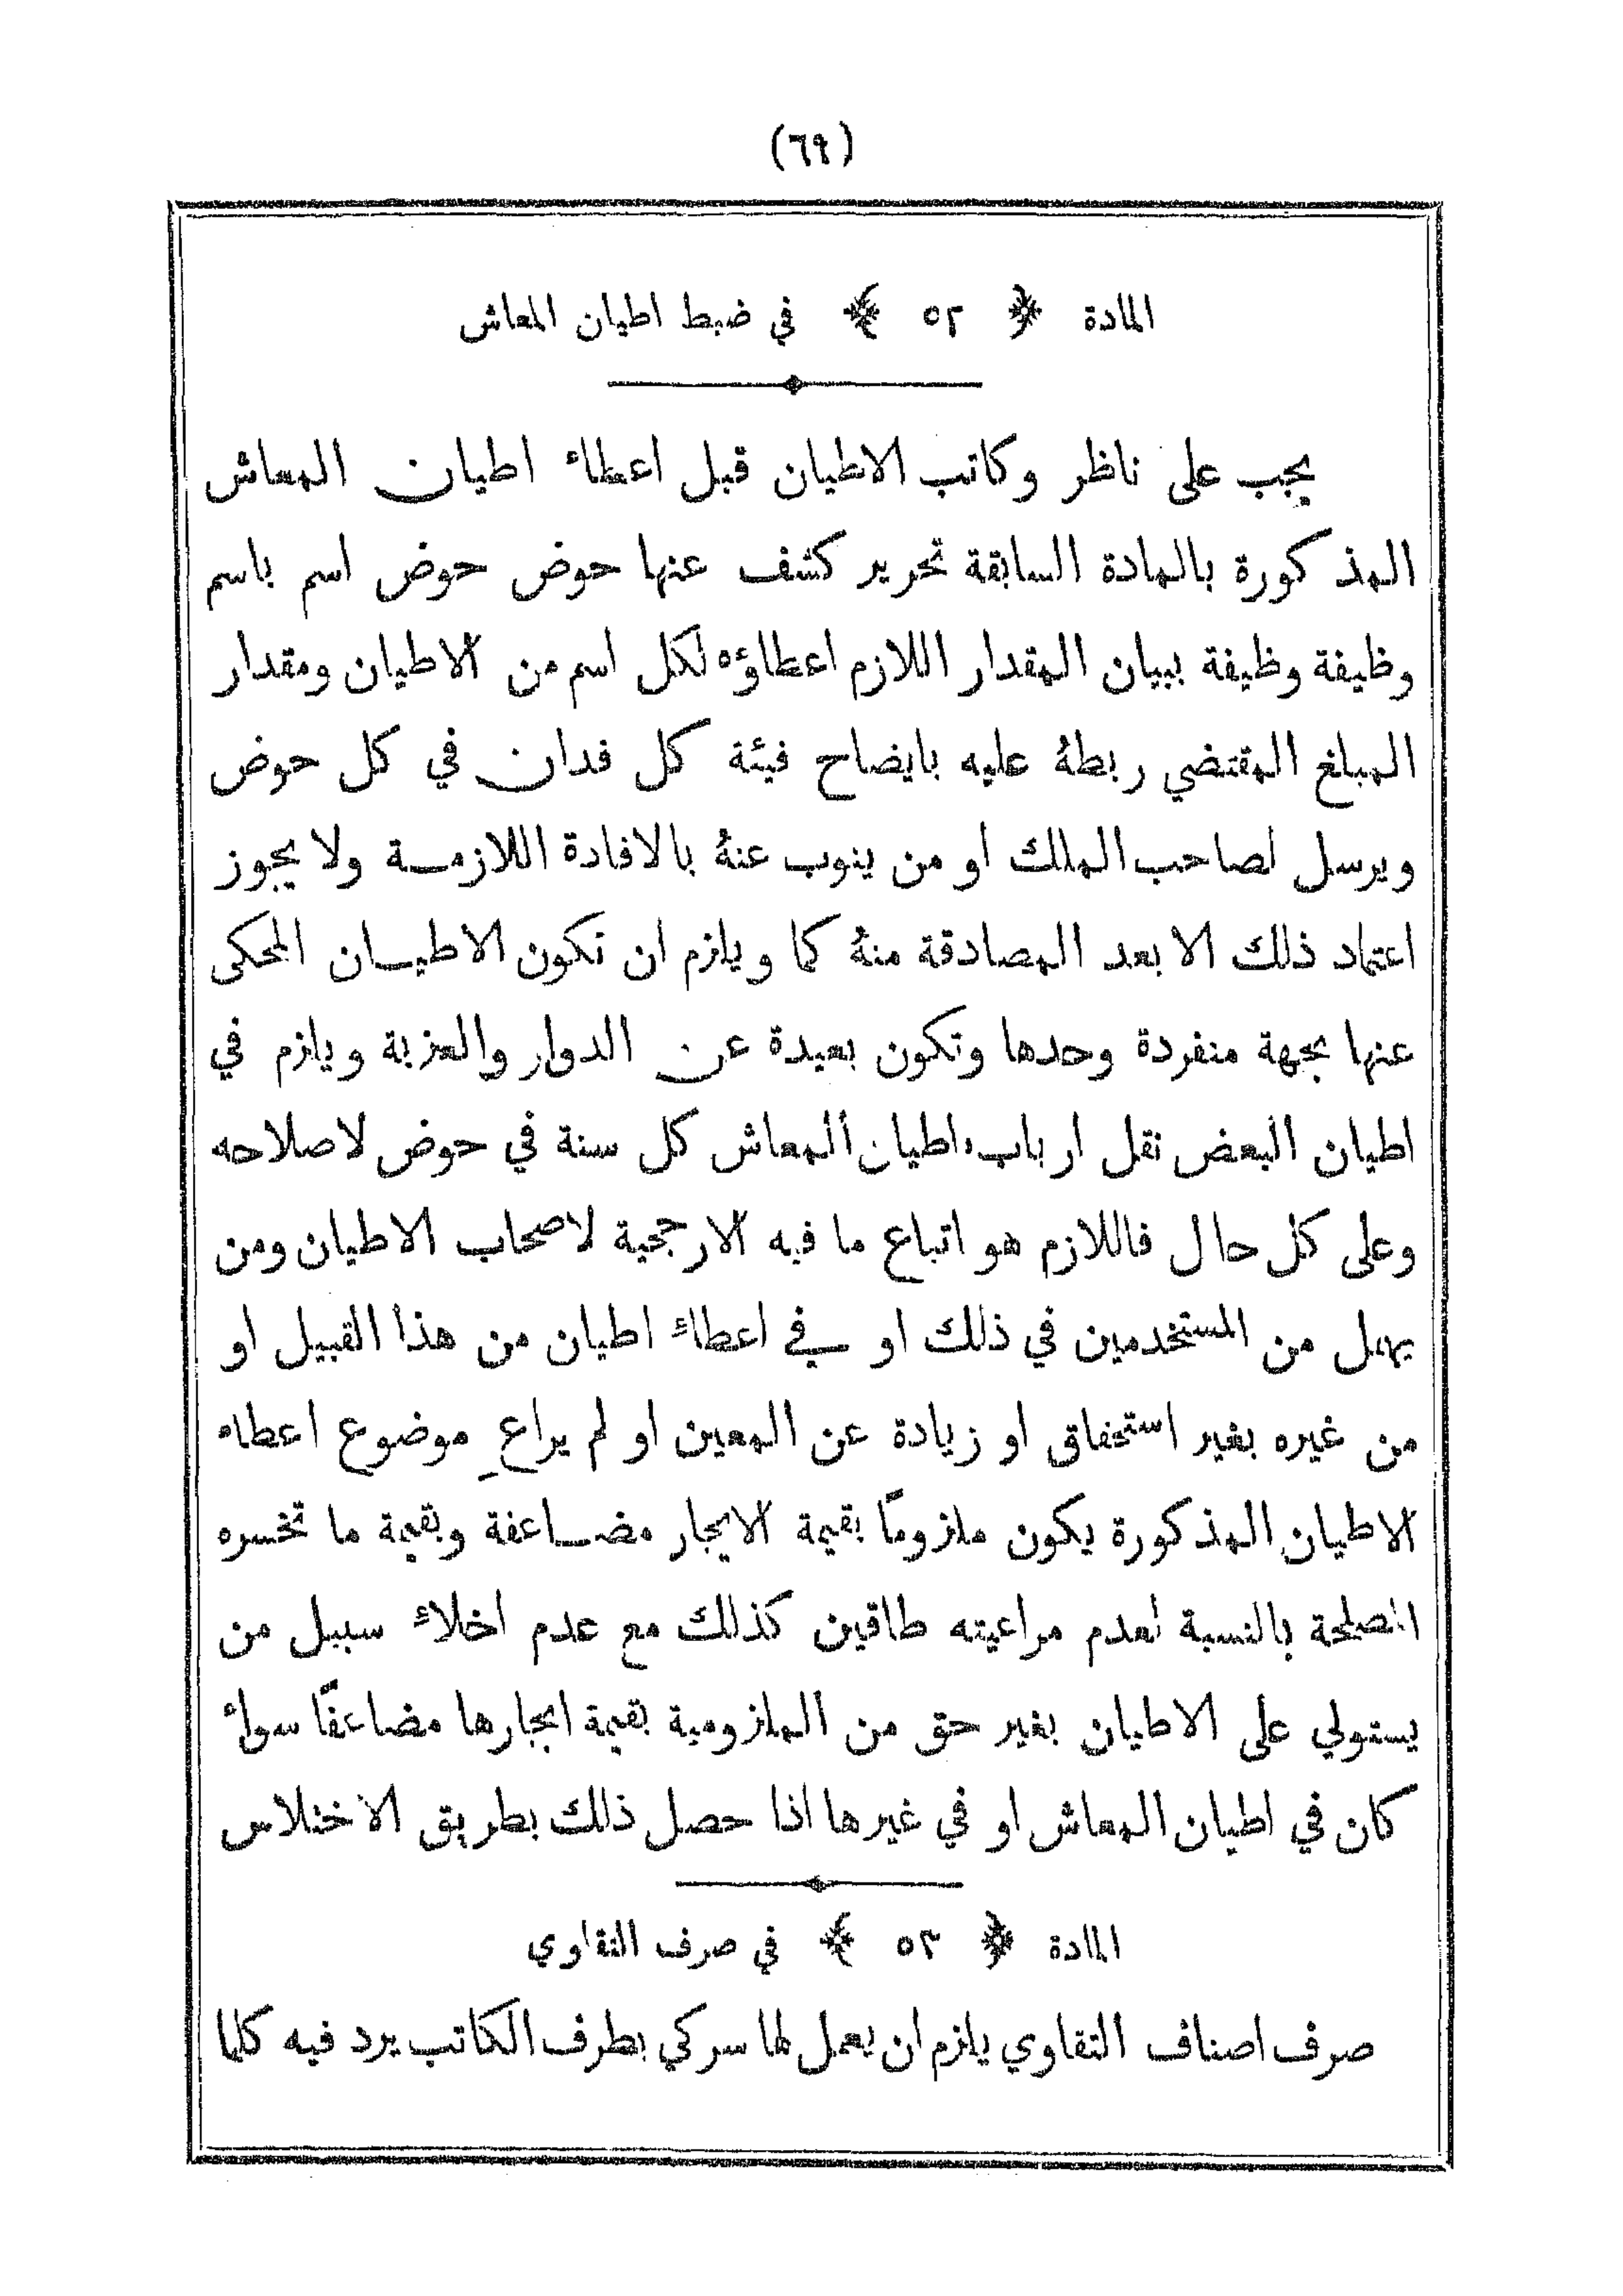 (٦٩)
المادة ﴿ ٥٢ ﴾ في ضبط اطيان المعاش
يجب على ناظر وكاتب الاطيان قبل اعطاء اطيان المعاش
المذكورة بالمادة السابقة تحرير كشف عنها حوض حوض اسم باسم
وظيفة وظيفة ببيان المقدار اللازم اعطاؤه لكل اسم من الاطيان ومقدار
المبلغ المقتضي ربطهُ عليه بايضاح فيئة كل فدان في كل حوض
ويرسل لصاحب الملك او من ينوب عنهُ بالافادة اللازمة ولا يجوز
اعتماد ذلك الا بعد المصادقة منهُ كما ويلزم ان تكون الاطيان المحكى
عنها بجهة منفردة وحدها وتكون بعيدة عن الدوار والعزبة ويلزم في
اطيان البعض نقل ارباب اطيان المعاش كل سنة في حوض لاصلاحه
وعلى كل حال فاللازم هو اتباع ما فيه الارجحية لاصحاب الاطيان ومن
يهمل من المستخدمين في ذلك او في اعطاء اطيان من هذا القبيل او
من غيره بغير استحقاق او زيادة عن المعين او لم يراعِ موضوع اعطاه
الاطيان المذكورة يكون ملزومًا بقيمة الايجار مضاعفة وبقيمة ما تخسره
المصلحة بالنسبة لعدم مراعيته طاقين كذلك مع عدم اخلاء سبيل من
يستولي على الاطيان بغير حق من الملزومية بقيمة ايجارها مضاعفًا سواء
كان في اطيان المعاش او في غيرها اذا حصل ذلك بطريق الاختلاس
المادة ﴿ ٥٣ ﴾ في صرف التقاوي
صرف اصناف التقاوي يلزم ان يعمل لها سركي بطرف الكاتب يرد فيه كلما